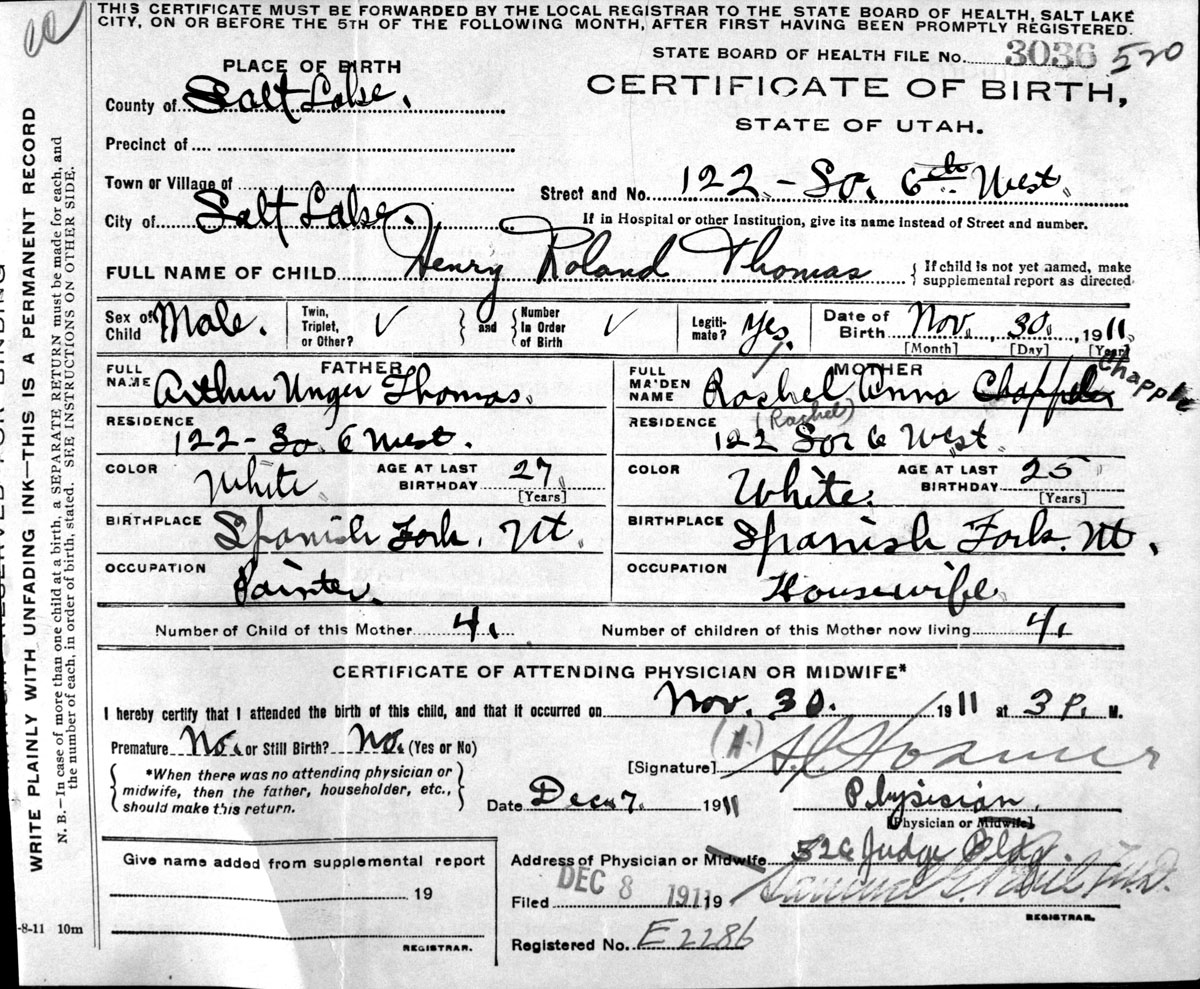 THIS CERTIFICATE MUST BE FORWARDED BY THE LOCAL REGISTRAR TO THE STATE BOARD OF HEALTH, SALT LAKE
CITY, ON OR BEFORE THE 5TH OF THE FOLLOWING MONTH, AFTER FIRST HAVING BEEN PROMPTLY REGISTERED.
STATE BOARD OF HEALTH FILE No. 3036 520
PLACE OF BIRTH
CERTIFICATE OF BIRTH,
STATE OF UTAH.
County of Salt Lake.
Precinct of
Town or Village of
Street and No. 122 - So. 6th West
City of Salt Lake.
If in Hospital or other Institution, give its name instead of Street and number.
FULL NAME OF CHILD Henry Roland Thomas
If child is not yet named, make
supplemental report as directed
Sex of Child Male.
Twin, Triplet, or Other? ✓
and Number In Order of Birth ✓
Legiti-mate? Yes.
Date of Birth Nov. 30, 1911
[Month] [Day] [Year]
FATHER
FULL NAME Arthur Unger Thomas.
RESIDENCE
122 - So. 6 West.
COLOR White
AGE AT LAST BIRTHDAY 27
[Years]
BIRTHPLACE Spanish Fork, Ut.
OCCUPATION
Painter.
MOTHER
FULL MAIDEN NAME Rachel Anna Chapple Chapple
(Rachel)
RESIDENCE
122 So 6 West
COLOR White.
AGE AT LAST BIRTHDAY 25
[Years]
BIRTHPLACE
Spanish Fork. Ut.
OCCUPATION
Housewife
Number of Child of this Mother 4.
Number of children of this Mother now living 4.
CERTIFICATE OF ATTENDING PHYSICIAN OR MIDWIFE*
I hereby certify that I attended the birth of this child, and that it occurred on Nov. 30. 1911 at 3 P. M.
Premature No. or Still Birth? No. (Yes or No)
*When there was no attending physician or
midwife, then the father, householder, etc.,
should make this return.
(H.)
[Signature]
Date Dec. 7. 1911
Physician.
[Physician or Midwife]
Address of Physician or Midwife 526 Judge Bldg.
Filed DEC 8 1911 19
M.D.
REGISTRAR.
Registered No. E 2286
Give name added from supplemental report
19
REGISTRAR.
-8-11 10m
WRITE PLAINLY WITH UNFADING INK—THIS IS A PERMANENT RECORD
N. B.—In case of more than one child at a birth, a SEPARATE RETURN must be made for each, and
the number of each, in order of birth, stated. SEE INSTRUCTIONS ON OTHER SIDE.